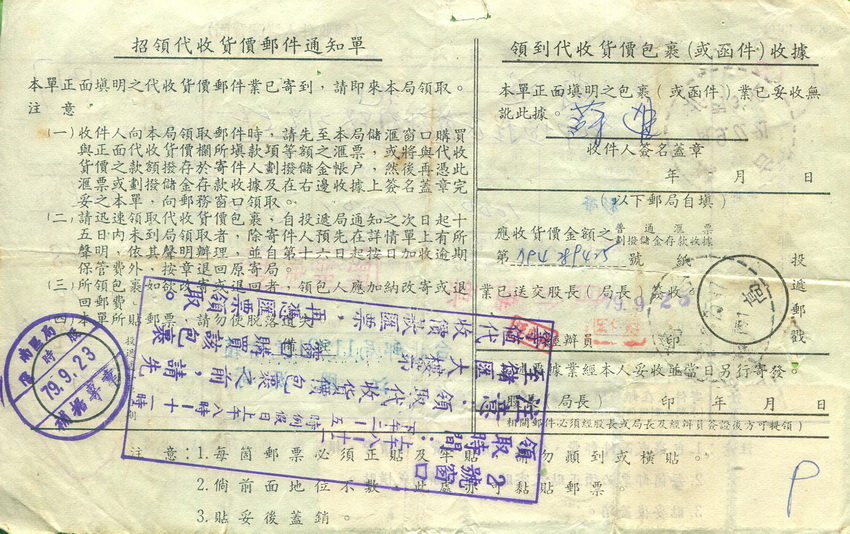 招領代收貨價郵件通知單
本單正面填明之代收貨價郵件業已寄到，請即來本局領取。
注意
(一)收件人向本局領取郵件時，請先至本局儲滙窗口購買
與正面代收貨價欄所填款項等額之滙票，或將與代收
貨價之款額撥存於寄件人劃撥儲金帳户，然後再憑此
滙票或劃撥儲金存款收據及在右邊收據上簽名蓋章完
妥之本單，向郵務窗口領取。
(二)請迅速領取代收貨價包裹，自投遞局通知之次日起十
五日內未到局領取者，除寄件人預先在詳情單上有所
聲明，依其聲明辦理，並自第十六日起按日加收逾期
保管費外，按章退回原寄局
(三)所領包裹如欲改寄或退回，領包人應加納改寄或退
回郵費。
(四)本單所貼郵票，請勿使脫落遺失
領到代收貨價包裹(或函件)收據
本單正面填明之包裹(或函件)業已妥收無
訛此據。
收件人簽名蓋章
年 月 日
(以下郵局自填)
應收貨價金額之普通滙票
劃撥儲金存款收據
第 號紙
業已送交股長(局長)簽收。
79.9.23
經辦員 印
投遞郵戳
股長(局長) 印 年 月 日
相關郵件必須經股長或局長及經辦員簽證後方可提領)
79.9.23
注意：1.每箇郵票必須正貼及牢貼，勿顚到或橫貼。
2.倘前面地位不敷，此處亦可黏貼郵票。
3.貼妥後蓋銷。
2號窗口
領取時間：
上午八—十二時
注意：領取代收貨價包裹之前，請先
至儲匯大樓
購買該包裹
代收價款匯票，再憑
取。
P